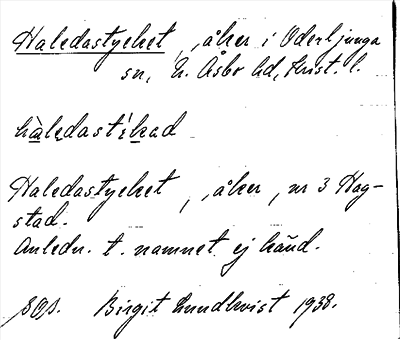 Haledastycket, åker i Oderljunga
sn, N. Åsbo hd, Krist. l.
hàlẹdasté̩kad
Haledastycket, åker, nr 3 Hag-
stad.
Anledn. t. namnet ej känd.
SOS. Birgit Lundkvist 1938.